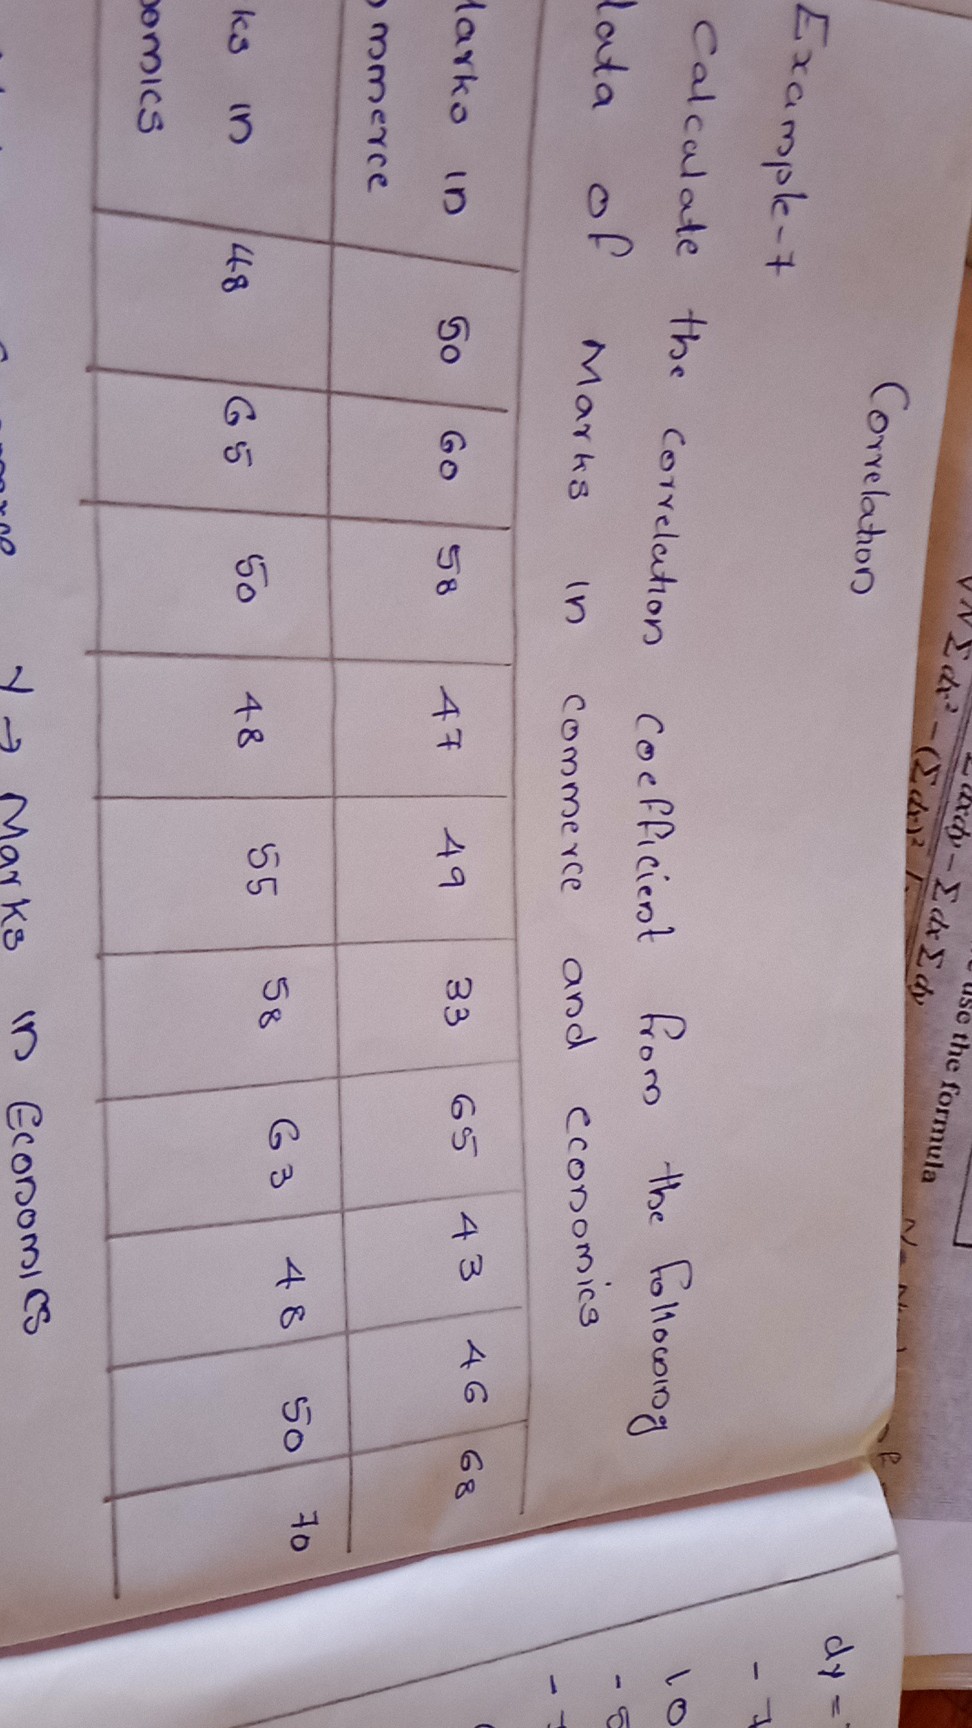 use the formula
Correlation
Example-7
Calculate the correlation coefficient from the following
data of Marks in commerce and economics
Marks in
ommerce
50 60 58 47 49 33 65 43 46 68
ks in
nomics
48 65 50 48 55 58 63 48 50 70
Y → Marks in Economics
dy =
- 7
10